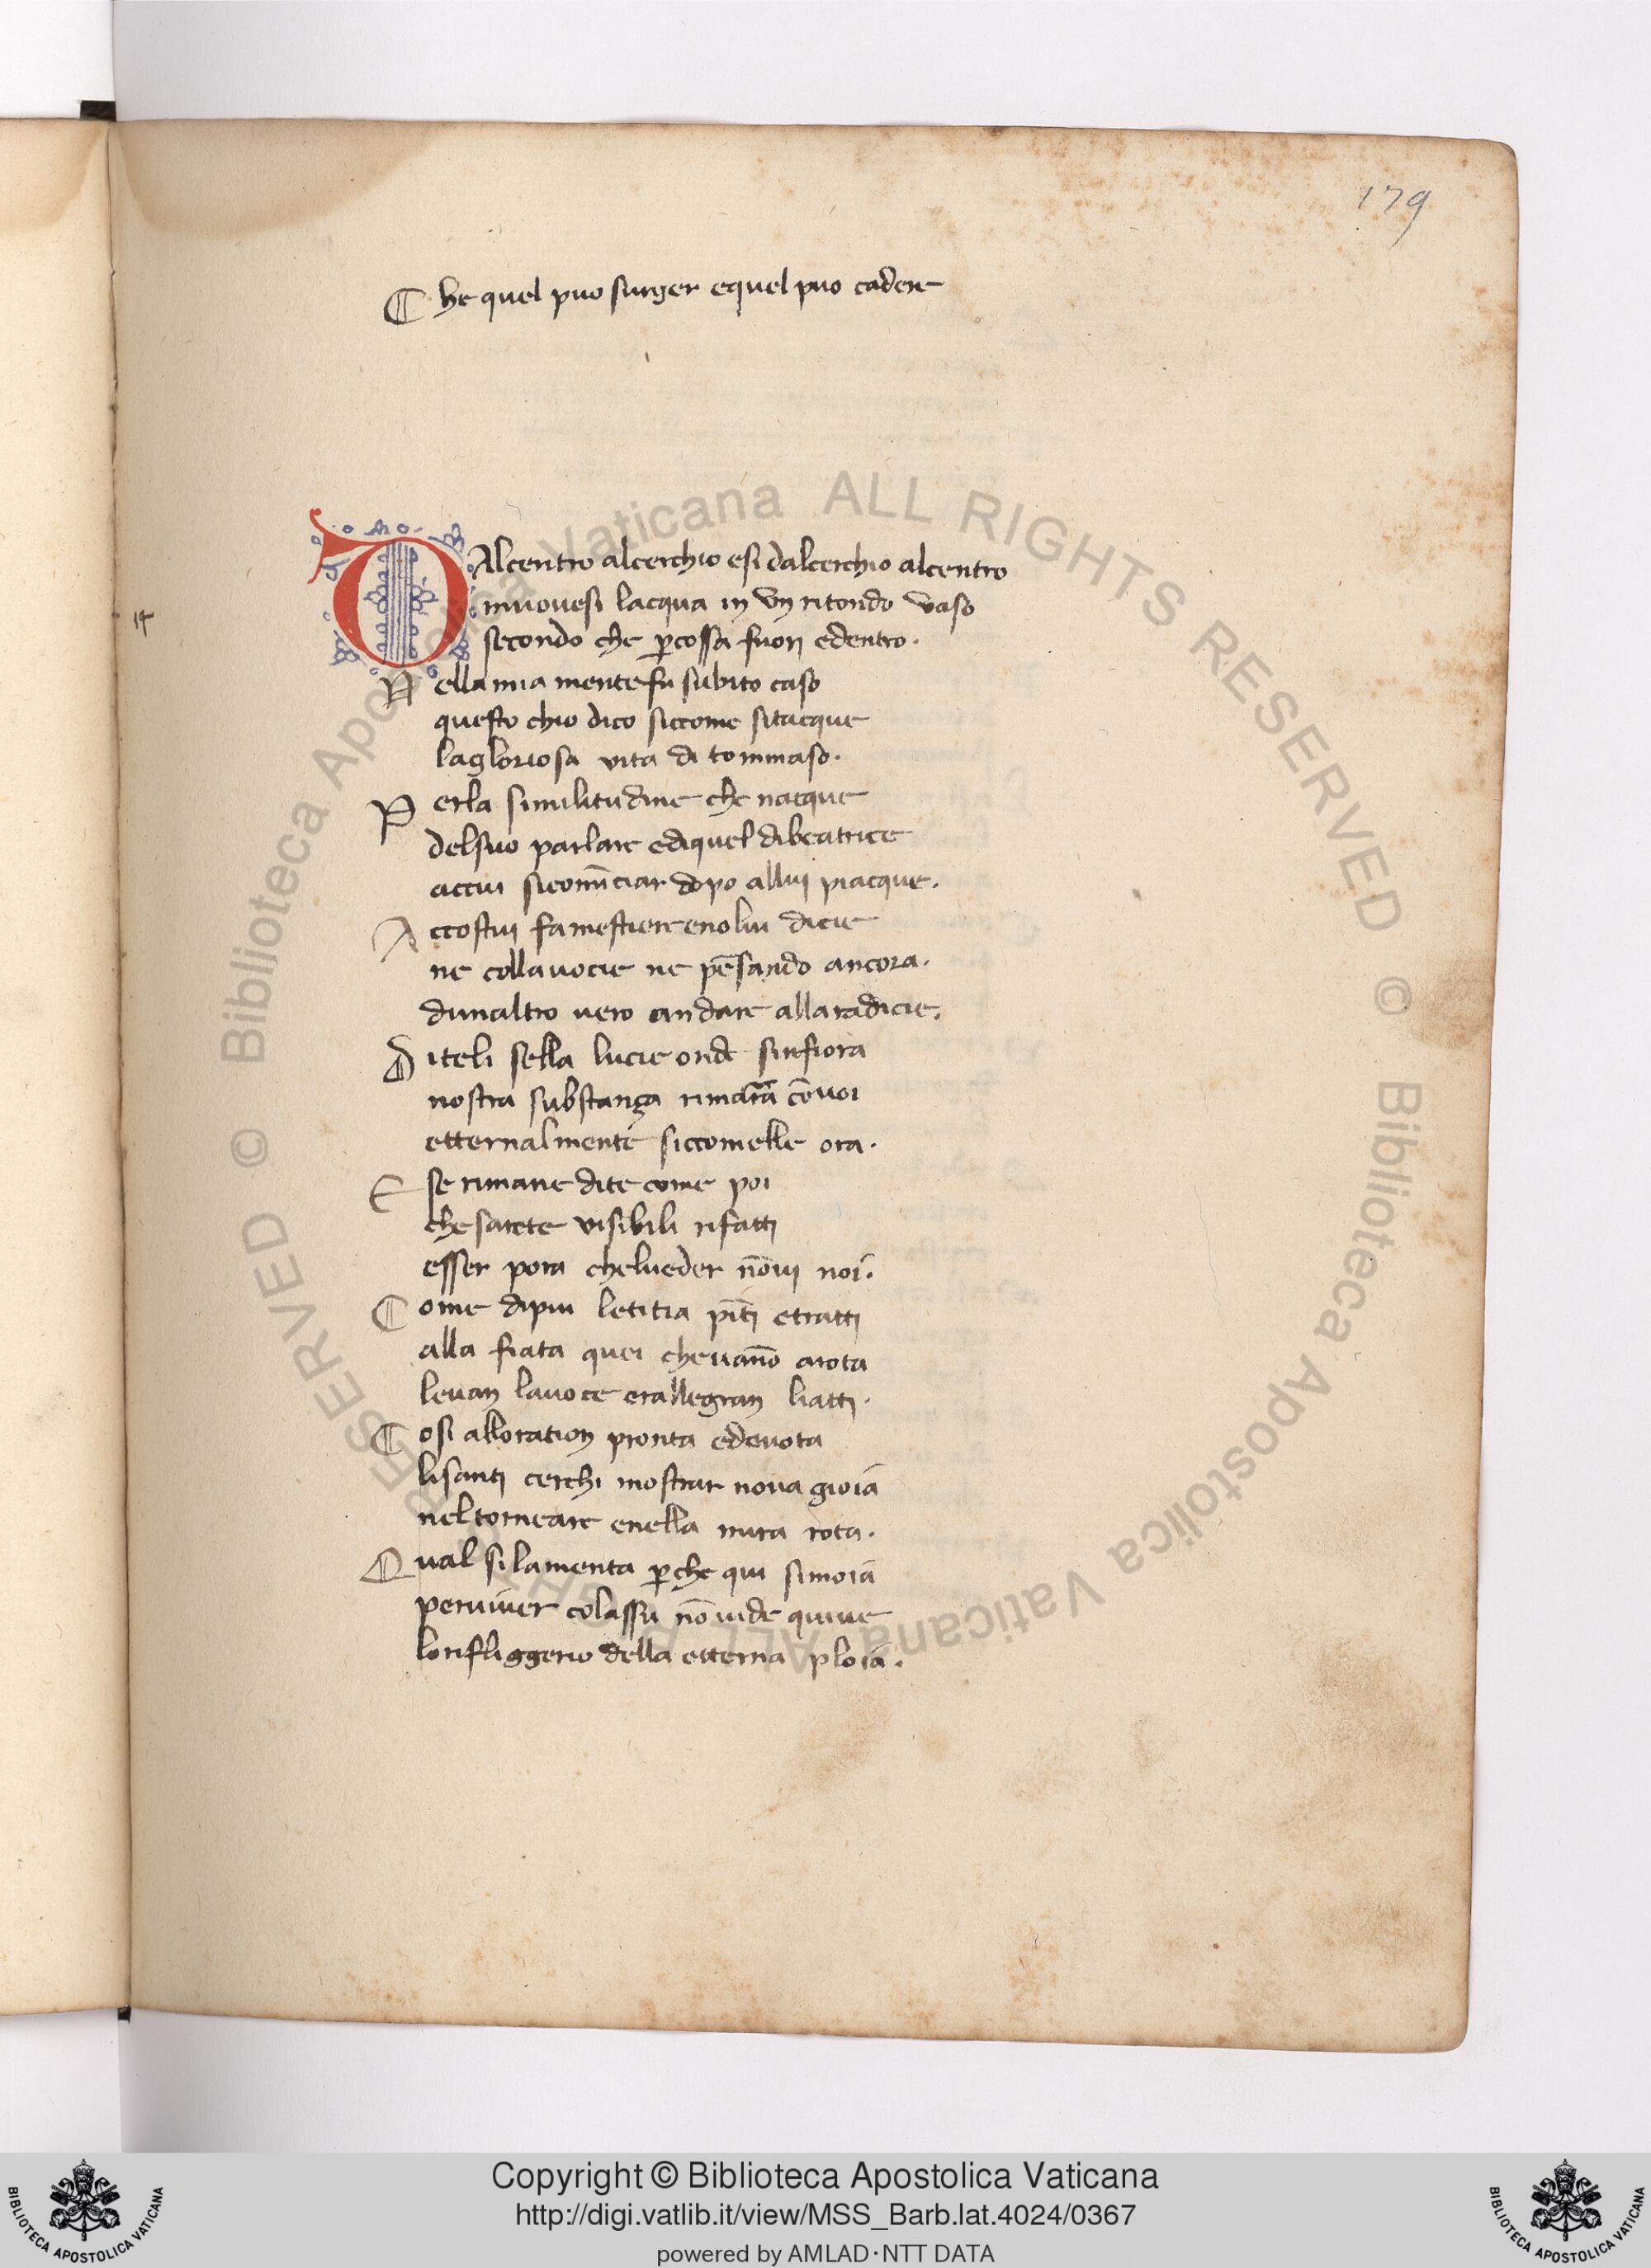 179
Che quel puo surger equel puo cadere
DAlcentro alcerchio esi dalcerchio alcentro
muouesi lacqua in vn ritondo vaso
secondo che ꝑcossa fuori edentro.
Nella mia mente fu subito caso
questo chio dico siccome sitacque
lagloriosa vita di tommaso.
Perla similitudine che nacque
delsuo parlare ediquel dibeatrice
accui sicomīciar dopo allui piacque.
Accostui famestiere enolui dicie
ne collauocie ne pēsando ancora.
dunaltro uero andare allaradicie.
Diteli sella lucie onde sinfiora
nostra substanza rimarra cōuoi
etternalmente siccomelle ora.
E se rimane dite come poi
chesarete visibili rifatti
esser pora chelueder nōui noi.
Come dipiu letitia pīti etratti
alla fiata quei cheuāno arota
leuan lauoce erallegran liatti.
Cosi alloration pronta edeuota
lisanti cerchi mostrar noua gioia
neltorneare enella mira rota.
Qual silamenta ꝑche qui simoia
peruiuer colassu nō uide quiue
lorifriggerio della etterna ploia.
14
© Biblioteca Apostolica Vaticana ALL RIGHTS RESERVED © Biblioteca Apostolica Vaticana ALL RIGHTS RESERVED
Copyright © Biblioteca Apostolica Vaticana
http://digi.vatlib.it/view/MSS_Barb.lat.4024/0367
powered by AMLAD·NTT DATA
BIBLIOTECA APOSTOLICA VATICANA
BIBLIOTECA APOSTOLICA VATICANA